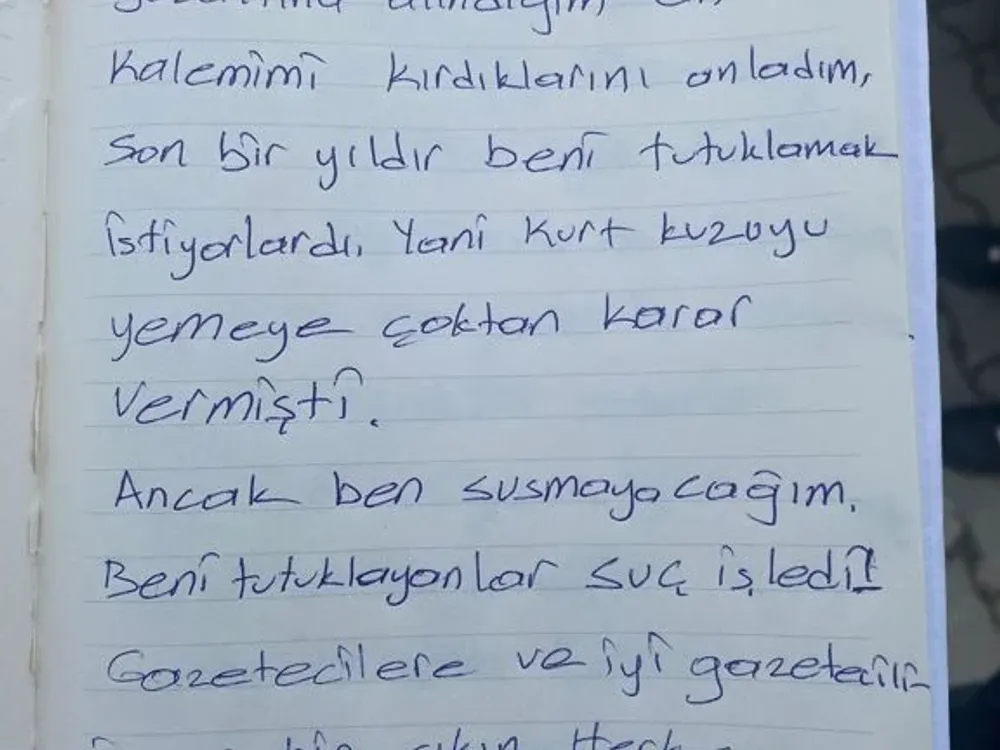 Kalemimi kırdıklarını anladım,
Son bir yıldır beni tutuklamak
istiyorlardı, Yani kurt kuzuyu
yemeye çoktan karar
vermişti.
Ancak ben susmayacağım.
Beni tutuklayanlar suç işledi!
Gazetecilere ve iyi gazetecili-